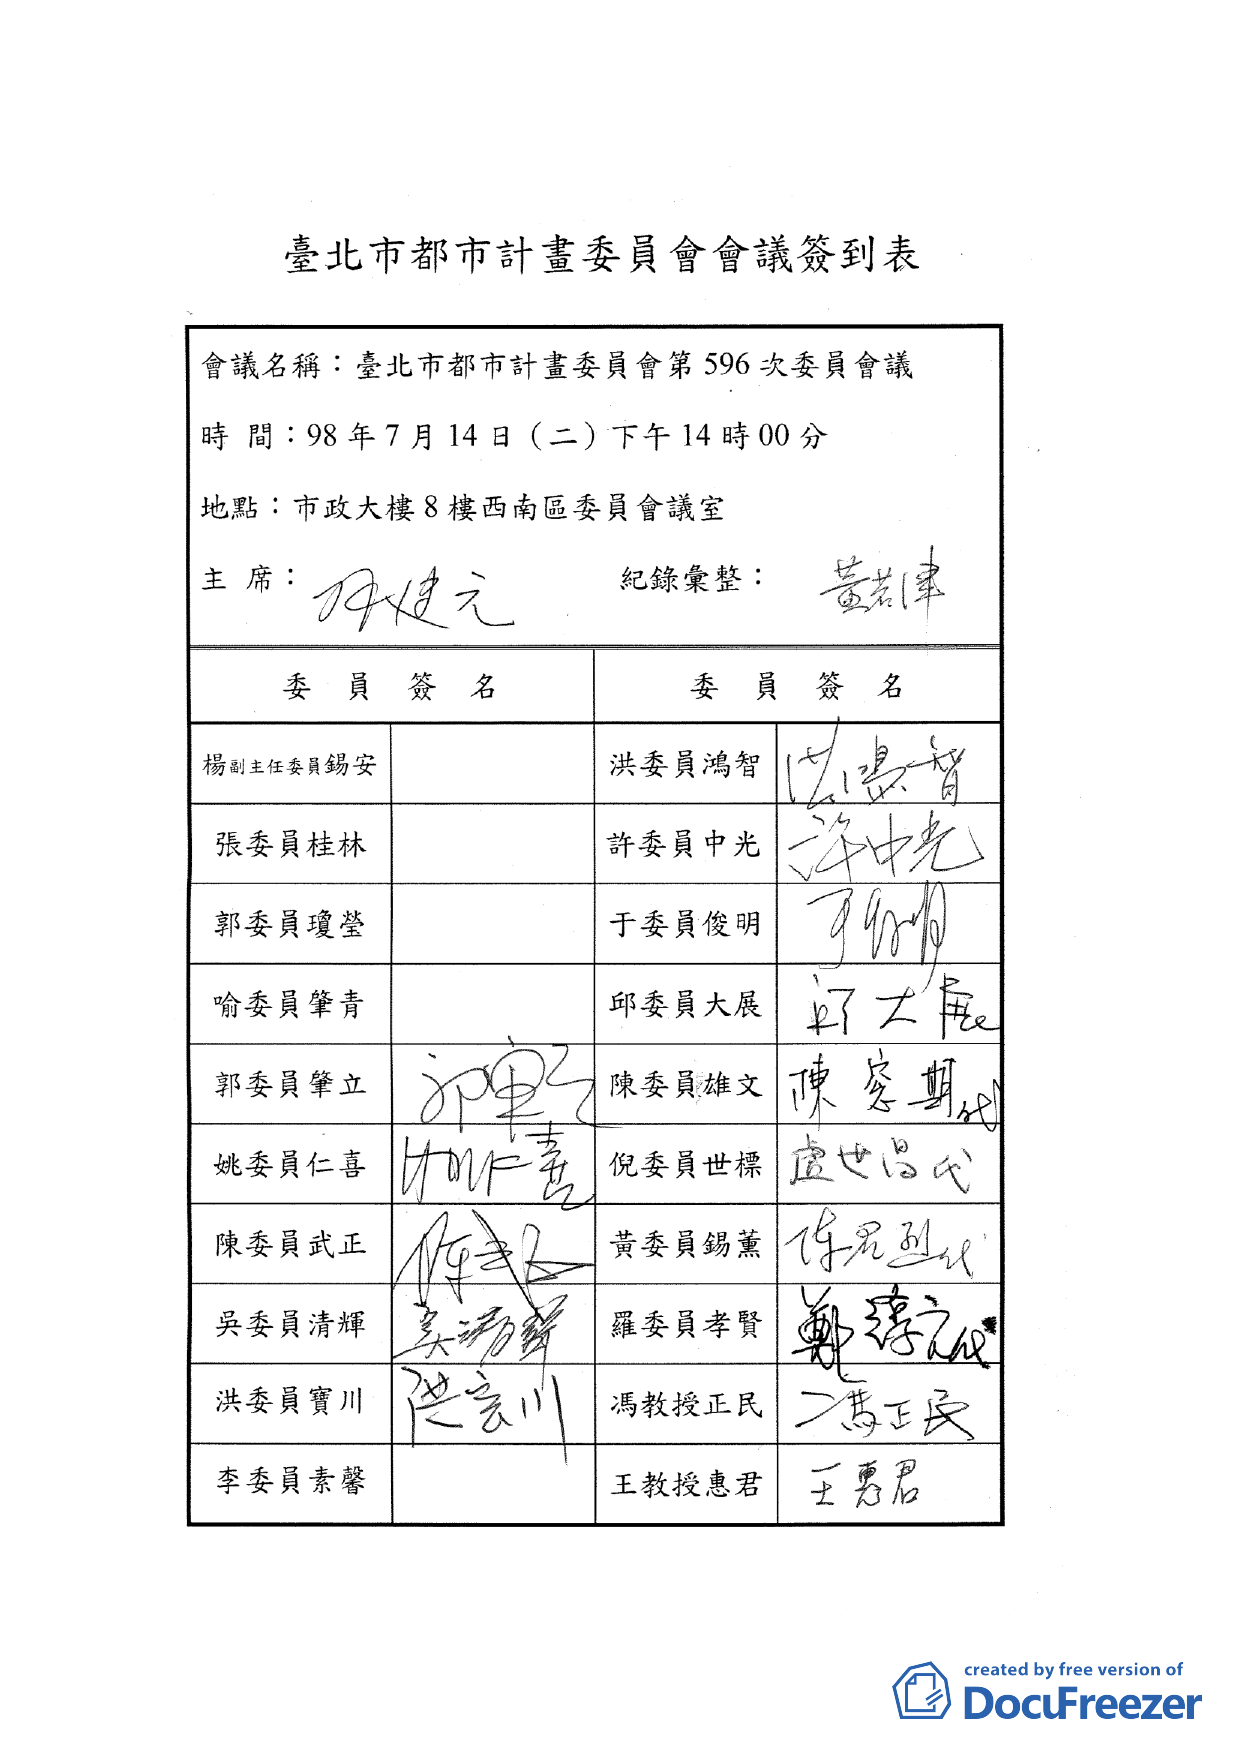 臺北市都市計畫委員會會議簽到表
會議名稱：臺北市都市計畫委員會第 596 次委員會議
時 間：98 年 7 月 14 日（二）下午 14 時 00 分
地點：市政大樓 8 樓西南區委員會議室
主 席： 紀錄彙整： 黃若津
委 員 簽 名 委 員 簽 名
楊副主任委員錫安 洪委員鴻智 洪鴻智
張委員桂林 許委員中光 許中光
郭委員瓊瑩 于委員俊明 于俊明
喻委員肇青 邱委員大展 邱大展
郭委員肇立 陳委員雄文 陳 期代
姚委員仁喜 姚仁喜 倪委員世標 盧世昌代
陳委員武正 陳武正 黃委員錫薰 陳君烈代
吳委員清輝 吳清輝 羅委員孝賢 鄭 代
洪委員寶川 洪宝川 馮教授正民 馮正民
李委員素馨 王教授惠君 王惠君
created by free version of
DocuFreezer